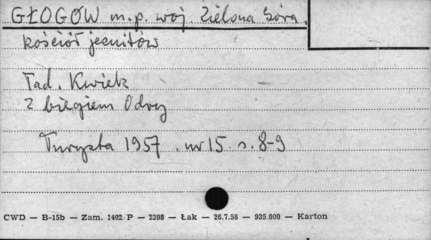 GŁOGÓW m.p. woj. Zielona Góra.
kościół jezuitów
Tad. Kwiek
Z biegiem Odry
Turysta 1957 . nr 15 s. 8-9
CWD — B-15b — Zam. 1402/P — 2398 — Łak — 26.7.58 — 935.000 — Karton